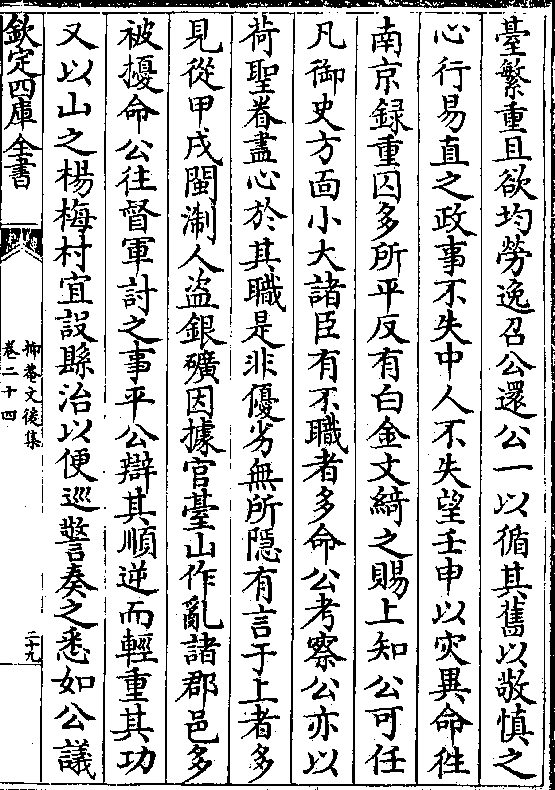 臺繁重且欲均勞逸召公還公一以循其舊以敬慎之
心行易直之政事不失中人不失望壬申以灾異命徃
南京録重囚多所平反有白金文綺之賜上知公可任
凡御史方面小大諸臣有不職者多命公考察公亦以
荷聖眷盡心於其職是非優劣無所隠有言于上者多
見從甲戌閩淛人盜銀礦因據官臺山作亂諸郡邑多
被擾命公往督軍討之事平公辯其順逆而輕重其功
又以山之楊梅村宜設縣治以便巡警奏之悉如公議
欽定四庫全書
抑菴文後集
卷二十四
二十九